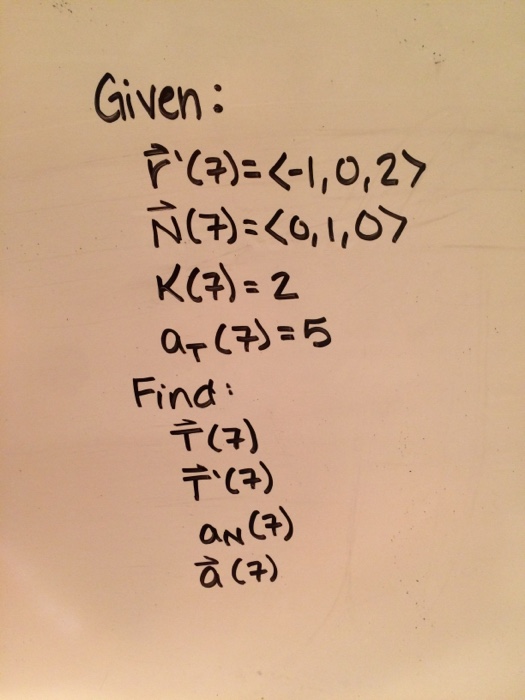 Given:
r⃗'(7)=<-1,0,2>
N⃗(7)=<0,1,0>
K(7)=2
a_T(7)=5
Find:
T⃗(7)
T⃗'(7)
a_N(7)
a⃗(7)